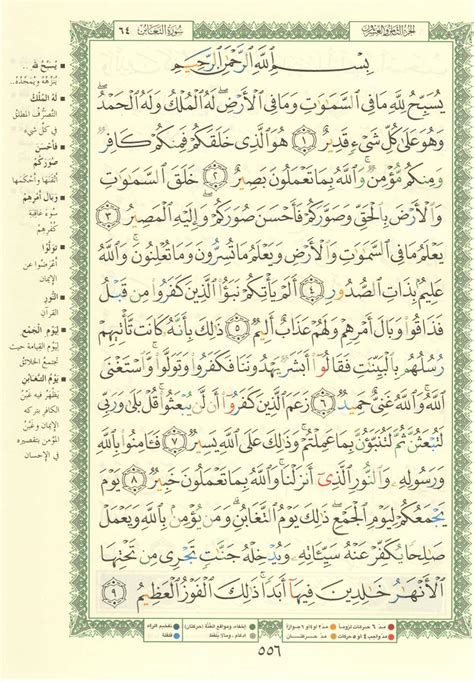 الجزء الثامن والعشرون
سورة التغابن ٦٤
بِسْمِ ٱللَّهِ ٱلرَّحْمَٰنِ ٱلرَّحِيمِ
يُسَبِّحُ لِلَّهِ مَا فِى ٱلسَّمَٰوَٰتِ وَمَا فِى ٱلْأَرْضِۖ لَهُ ٱلْمُلْكُ وَلَهُ ٱلْحَمْدُۖ
وَهُوَ عَلَىٰ كُلِّ شَىْءٍ قَدِيرٌ ١ هُوَ ٱلَّذِى خَلَقَكُمْ فَمِنكُمْ كَافِرٌ
وَمِنكُم مُّؤْمِنٌۚ وَٱللَّهُ بِمَا تَعْمَلُونَ بَصِيرٌ ٢ خَلَقَ ٱلسَّمَٰوَٰتِ
وَٱلْأَرْضَ بِٱلْحَقِّ وَصَوَّرَكُمْ فَأَحْسَنَ صُوَرَكُمْۖ وَإِلَيْهِ ٱلْمَصِيرُ ٣
يَعْلَمُ مَا فِى ٱلسَّمَٰوَٰتِ وَٱلْأَرْضِ وَيَعْلَمُ مَا تُسِرُّونَ وَمَا تُعْلِنُونَۚ وَٱللَّهُ
عَلِيمٌۢ بِذَاتِ ٱلصُّدُورِ ٤ أَلَمْ يَأْتِكُمْ نَبَؤُا۟ ٱلَّذِينَ كَفَرُوا۟ مِن قَبْلُ
فَذَاقُوا۟ وَبَالَ أَمْرِهِمْ وَلَهُمْ عَذَابٌ أَلِيمٌ ٥ ذَٰلِكَ بِأَنَّهُۥ كَانَت تَّأْتِيهِمْ
رُسُلُهُم بِٱلْبَيِّنَٰتِ فَقَالُوٓا۟ أَبَشَرٌ يَهْدُونَنَا فَكَفَرُوا۟ وَتَوَلَّوا۟ۚ وَّٱسْتَغْنَى
ٱللَّهُۚ وَٱللَّهُ غَنِىٌّ حَمِيدٌ ٦ زَعَمَ ٱلَّذِينَ كَفَرُوٓا۟ أَن لَّن يُبْعَثُوا۟ۚ قُلْ بَلَىٰ وَرَبِّى
لَتُبْعَثُنَّ ثُمَّ لَتُنَبَّؤُنَّ بِمَا عَمِلْتُمْۚ وَذَٰلِكَ عَلَى ٱللَّهِ يَسِيرٌ ٧ فَـَٔامِنُوا۟ بِٱللَّهِ
وَرَسُولِهِۦ وَٱلنُّورِ ٱلَّذِىٓ أَنزَلْنَاۚ وَٱللَّهُ بِمَا تَعْمَلُونَ خَبِيرٌ ٨ يَوْمَ
يَجْمَعُكُمْ لِيَوْمِ ٱلْجَمْعِۖ ذَٰلِكَ يَوْمُ ٱلتَّغَابُنِۗ وَمَن يُؤْمِنۢ بِٱللَّهِ وَيَعْمَلْ
صَٰلِحًا يُكَفِّرْ عَنْهُ سَيِّـَٔاتِهِۦ وَيُدْخِلْهُ جَنَّٰتٍ تَجْرِى مِن تَحْتِهَا
ٱلْأَنْهَٰرُ خَٰلِدِينَ فِيهَآ أَبَدًاۚ ذَٰلِكَ ٱلْفَوْزُ ٱلْعَظِيمُ ٩
يُسَبِّحُ لله ..
يُنَزِّهُهُ ويُمَجِّدُه..
لَهُ المُلْكُ
التصرُّفُ المطلق
في كلِّ شيء
فأحسَنَ
صُوَرَكم
أتقنها وأحكمها
وَبَالَ أمْرِهِمْ
سوءَ عاقبة
كُفْرِهِمْ
تَوَلَّوْا
أعْرَضُوا عن
الإيمان
النّورِ
القرآن
لِيَوْمِ الجَمْعِ
ليوم القيامة حيث
تجتمعُ الخلائق
يَوْمُ التَّغَابُنِ
يَظْهَرُ فيه غَبْنُ
الكافر بتركه
الإيمان وغَبْنُ
المؤمن بتقصيره
في الإحسان
مدّ ٦ حركات لزوماً مدّ ٢ أو ٤ أو ٦ جوازاً إخفاء، ومواقع الغُنَّة (حركتان) تفخيم الراء
مدّ واجب ٤ أو ٥ حركات مدّ حركتان إدغام، وما لا يُلفظ قلقلة
٥٥٦